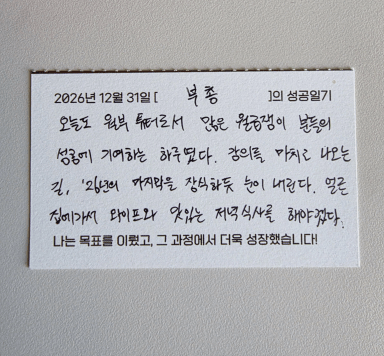 2026년 12월 31일 [ 부종 ]의 성공일기
오늘도 월부 튜터로서 많은 월급쟁이 분들의
성공에 기여하는 하루였다. 강의를 마치고 나오는
길, '26년의 마지막을 장식하듯 눈이 내린다. 얼른
집에가서 와이프와 맛있는 저녁식사를 해야겠다.
나는 목표를 이뤘고, 그 과정에서 더욱 성장했습니다!